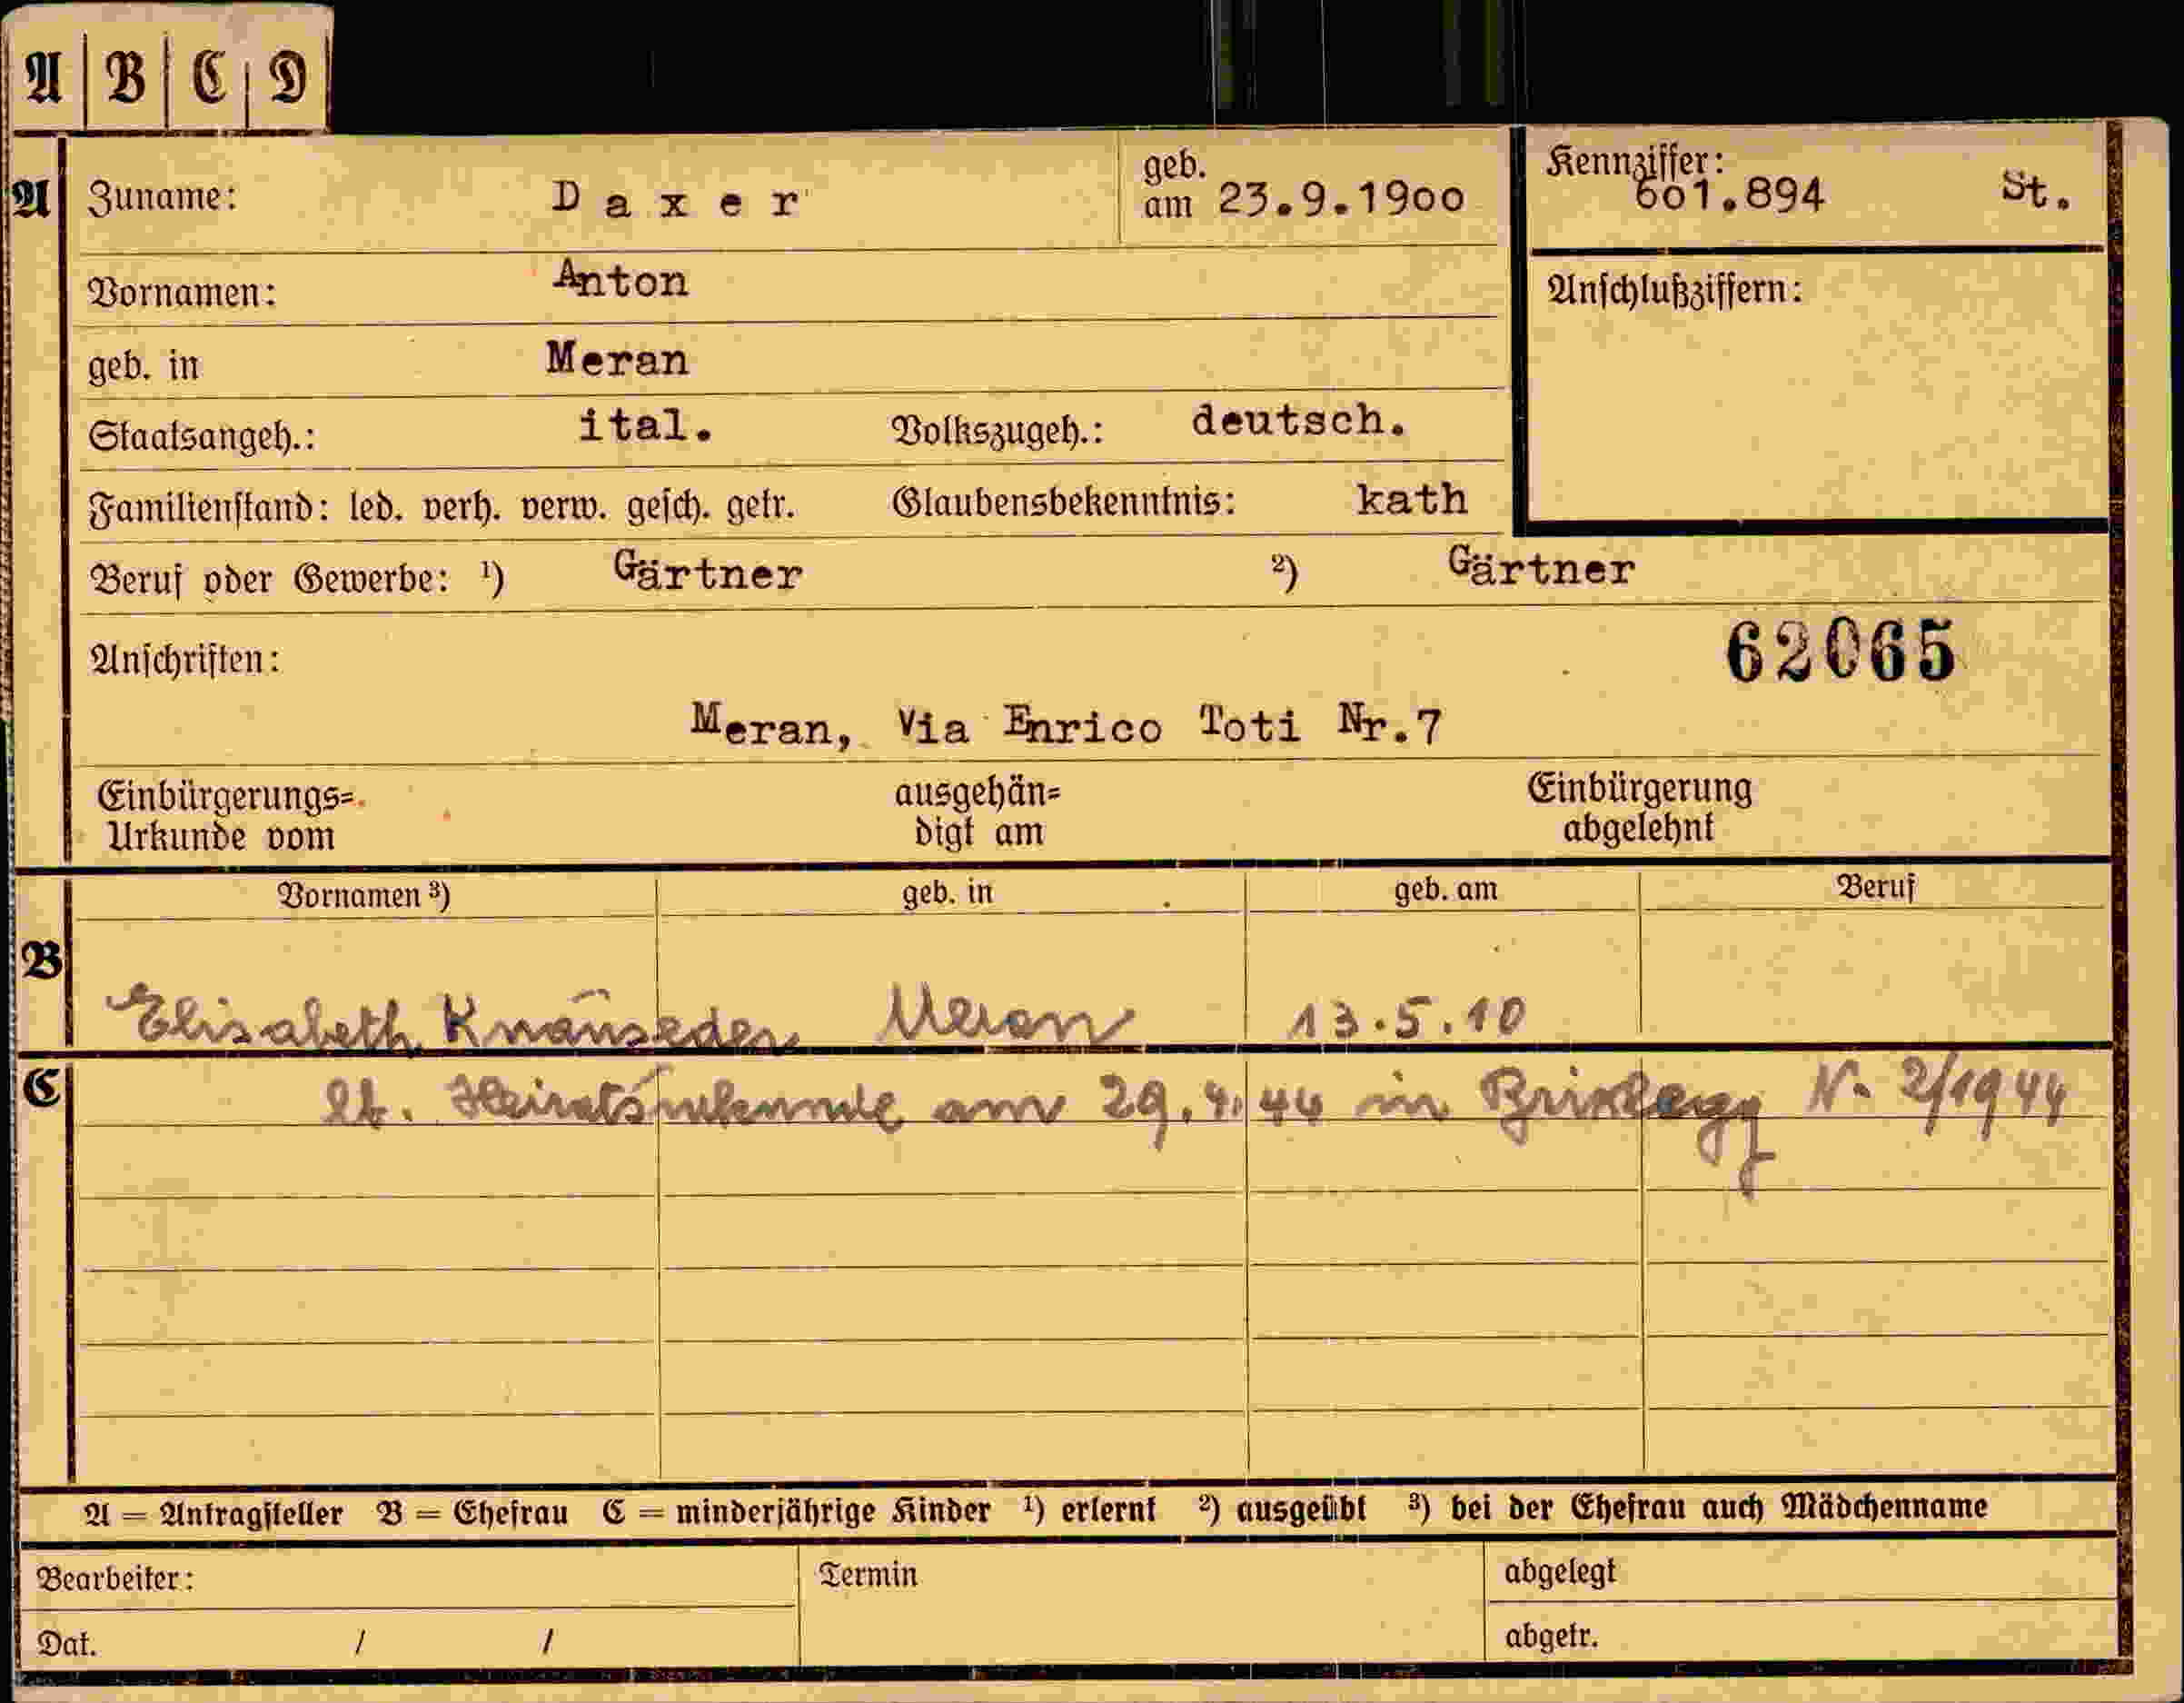 A B C D
A Zuname: Daxer geb. am 23.9.1900 Kennziffer: 601.894 St.
Vornamen: Anton Anschlußziffern:
geb. in Meran
Staatsangeh.: ital. Volkszugeh.: deutsch.
Familienstand: led. verh. verw. gesch. getr. Glaubensbekenntnis: kath
Beruf oder Gewerbe: ¹) Gärtner ²) Gärtner
Anschriften: 62065
Meran, Via Enrico Toti Nr.7
Einbürgerungs= ausgehän= Einbürgerung
Urkunde vom digt am abgelehnt
Vornamen ³) geb. in geb. am Beruf
B
Elisabeth Knäuseder Meran 13.5.10
C lt. Heiratsurkunde am 29.4.44 in N. 2/1944
A = Antragsteller B = Ehefrau C = minderjährige Kinder ¹) erlernt ²) ausgeübt ³) bei der Ehefrau auch Mädchenname
Bearbeiter: Termin abgelegt
Dat. / / abgetr.